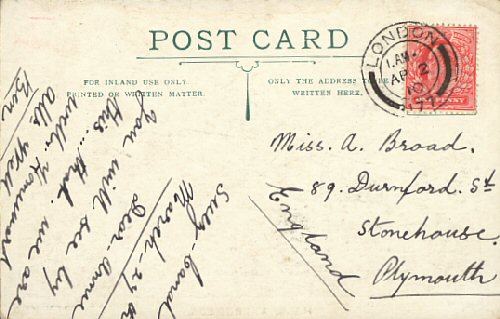 POST CARD
FOR INLAND USE ONLY.
PRINTED OR WRITTEN MATTER.
ONLY THE ADDRESS TO BE
WRITTEN HERE.
LONDON
1.AM
AP 2
10
PENNY
Miss. A. Broad.
89. Durnford. St
Stonehouse
Plymouth
England
Suez-Canal
March-24th
Dear. Annie
You will see by
this... that we are
well, Homeward
All well
Ben